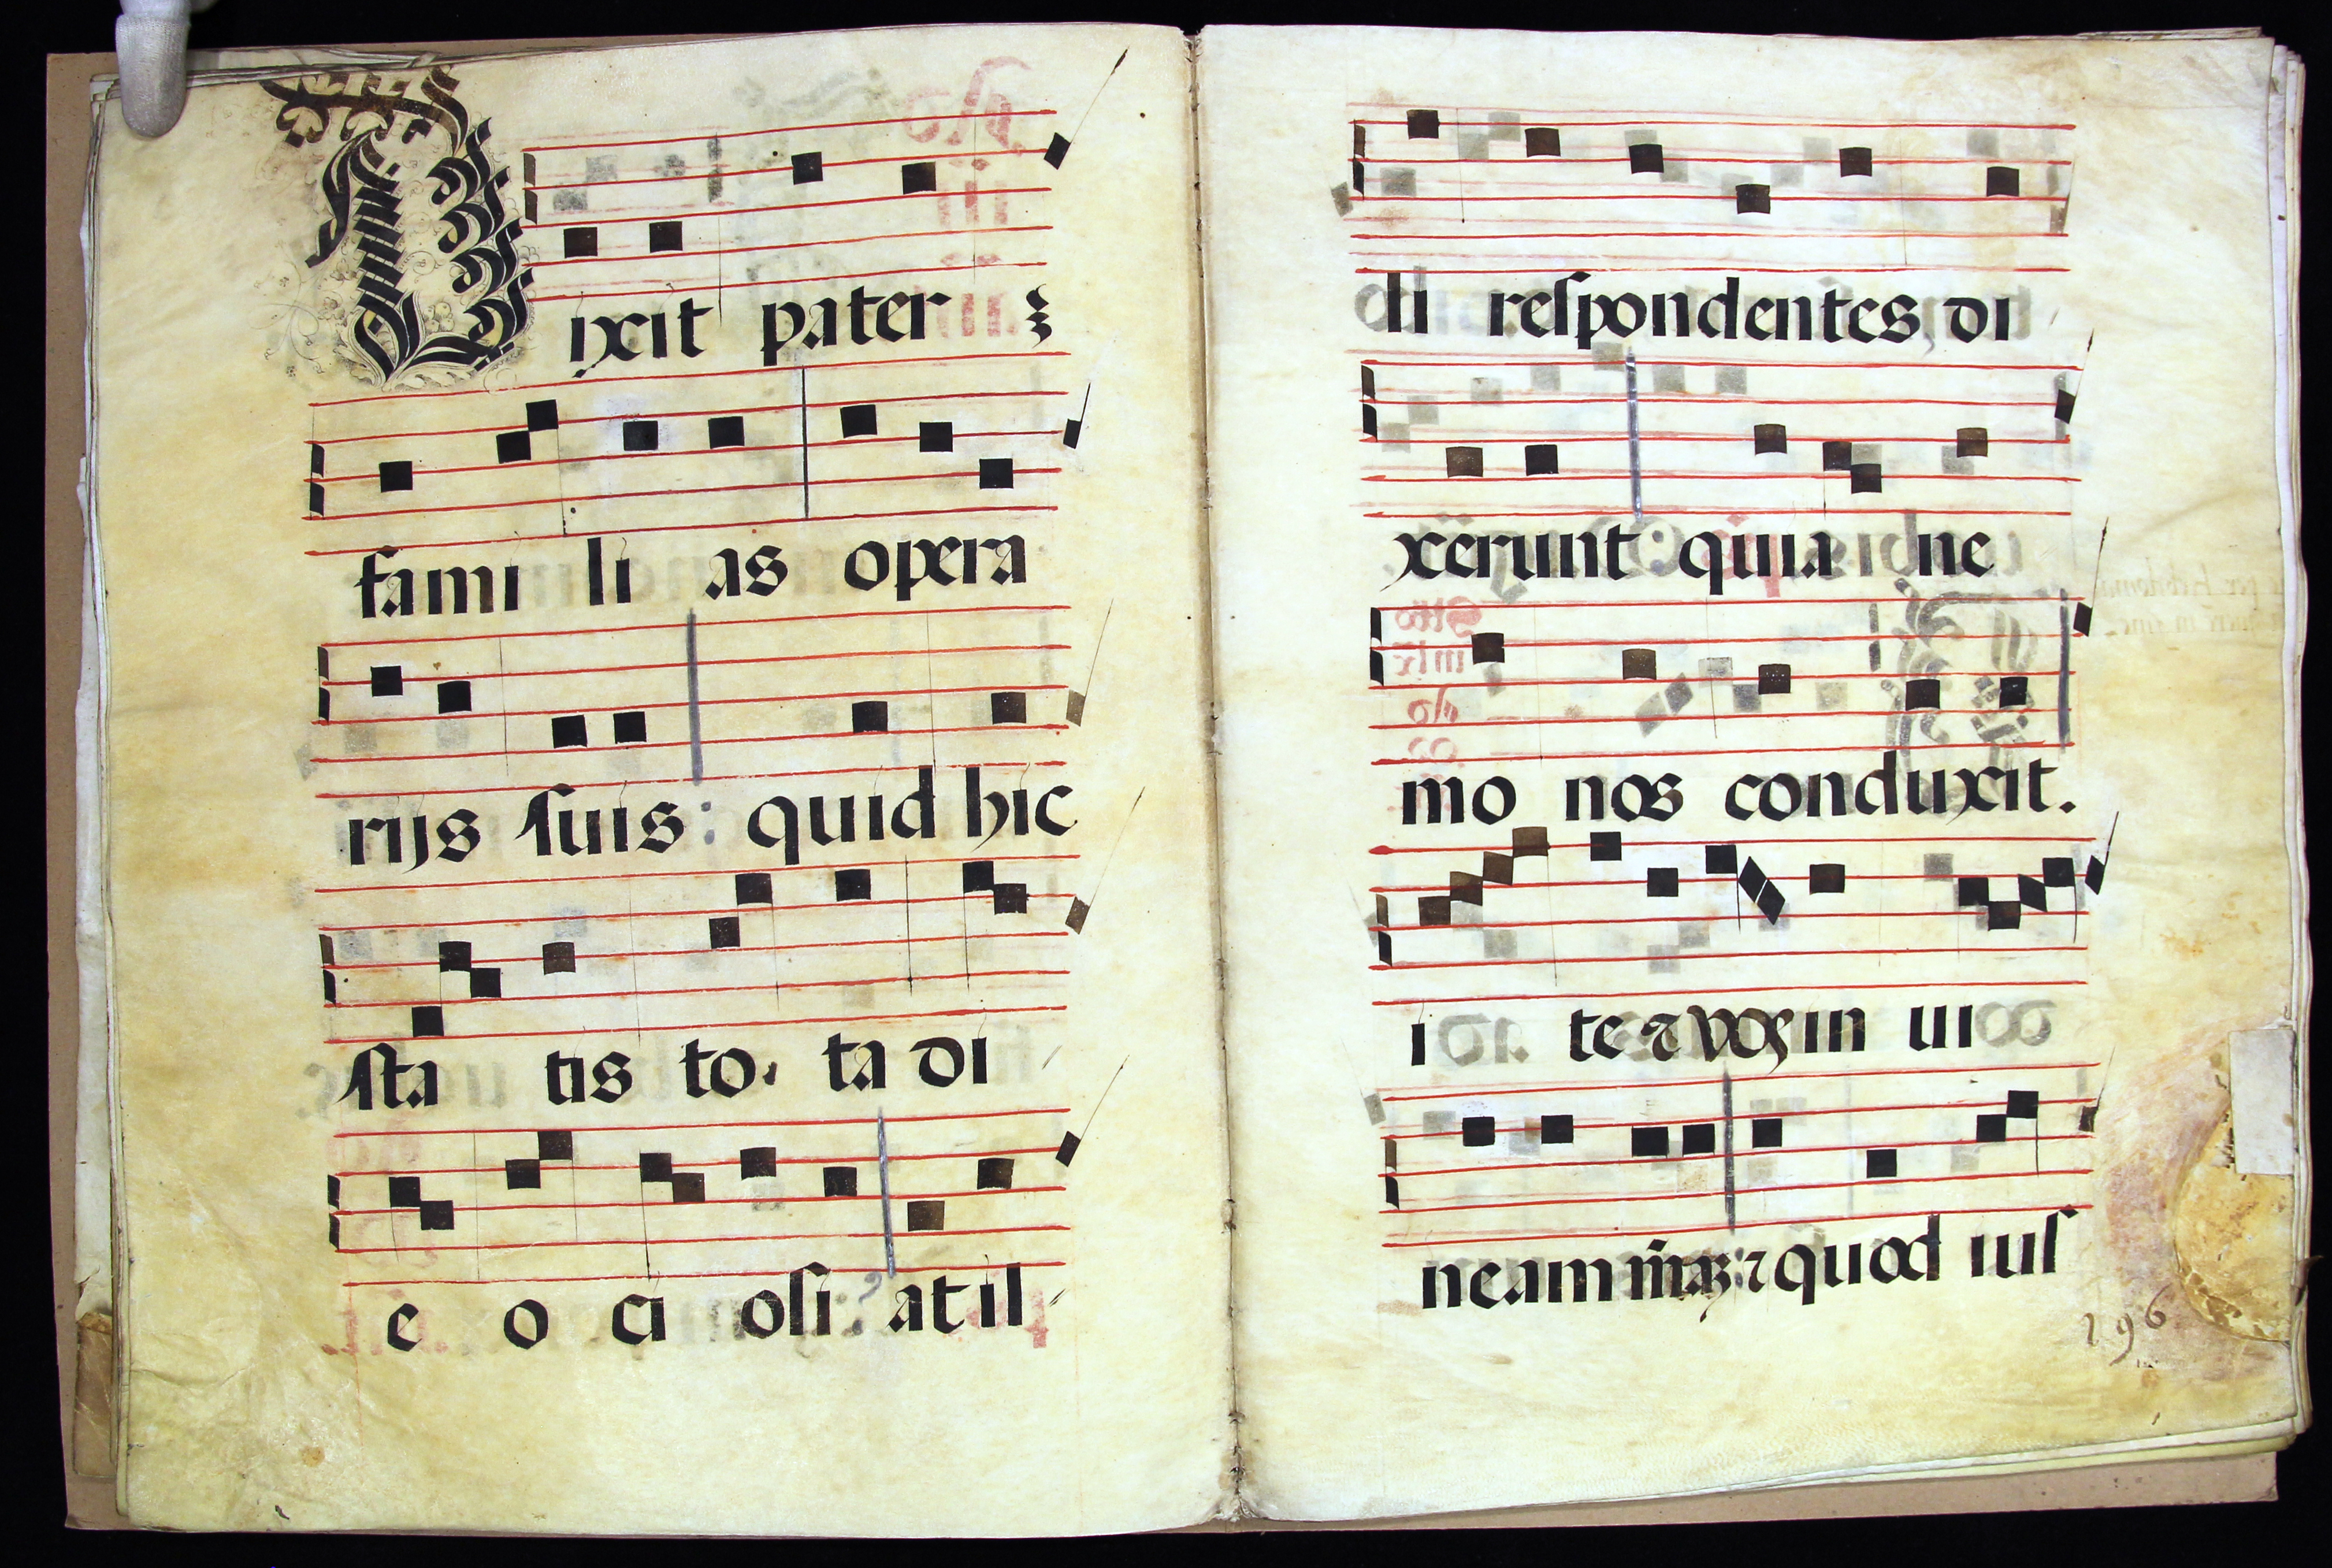 Dixit pater
fami li as opera
rijs ſuis: quid hic
ſta tis to ta di
e o ci oſi: at il
li reſpondentes, di
xerunt quia ne
mo nos conduxit.
i te ⁊ vos in ui
neam meaz: ⁊ quod iuſ
296